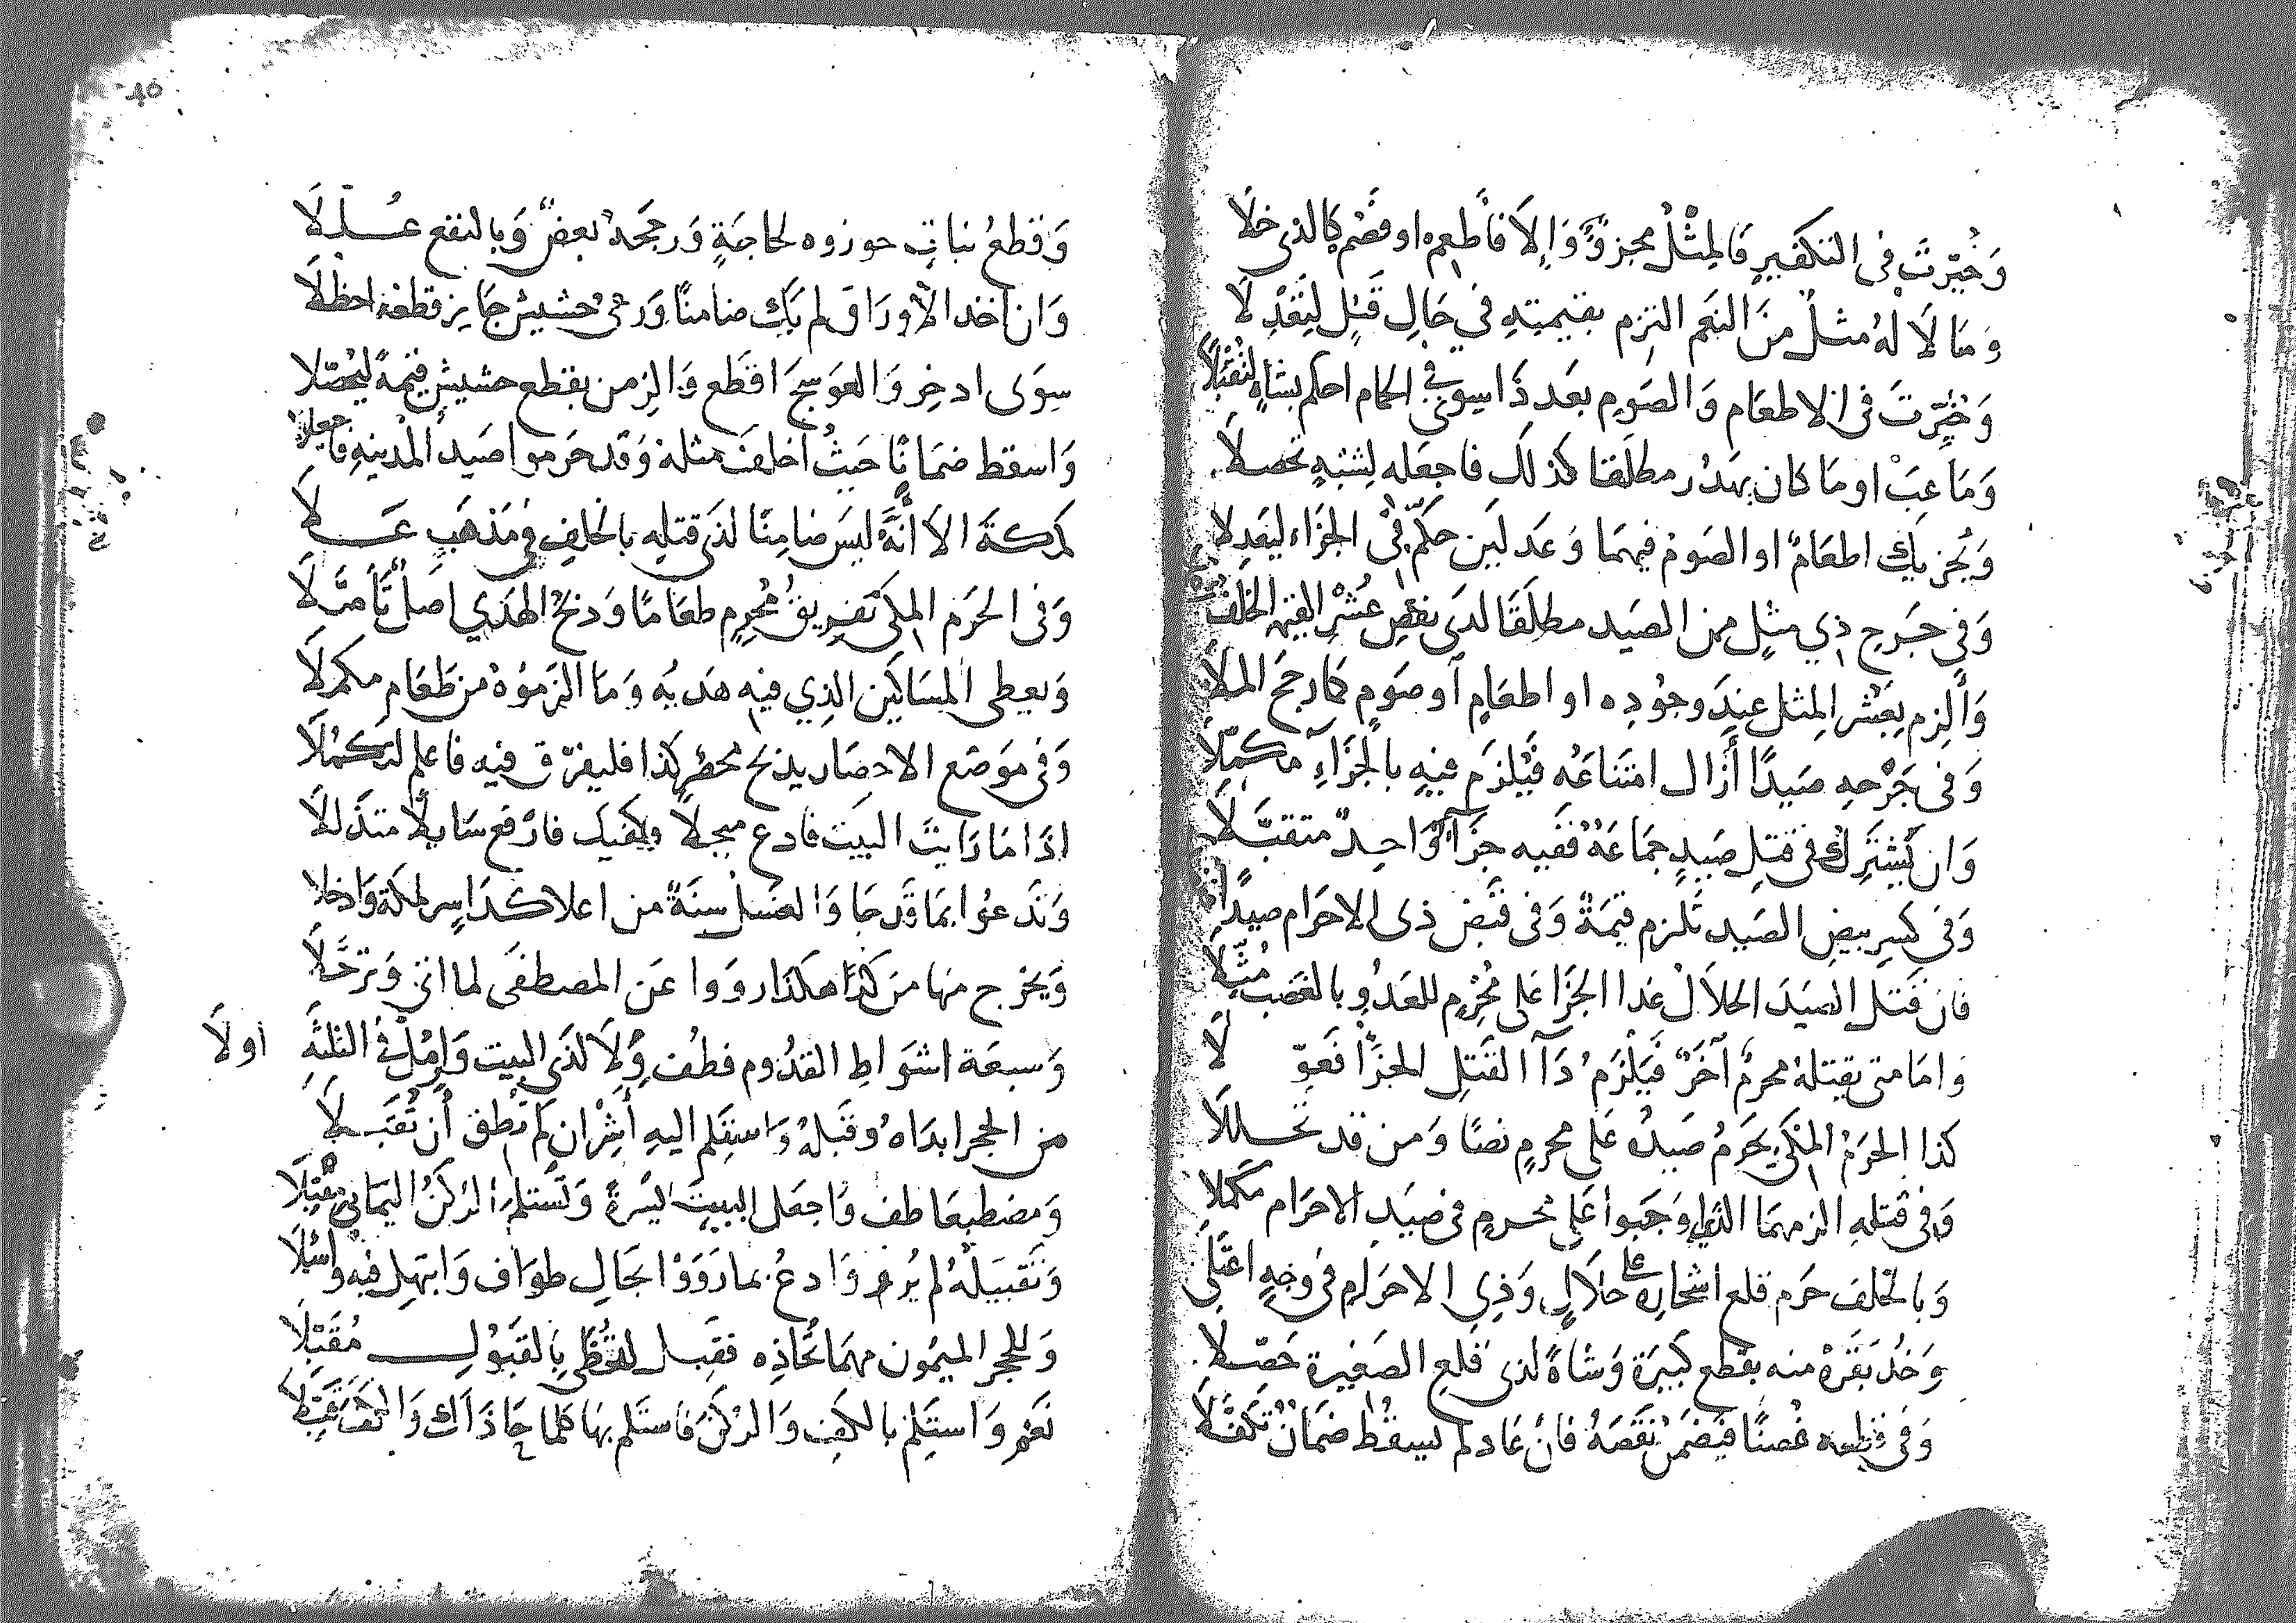 وَخُيِّرتَ في التكفير فالمِثْلُ مجزوٌ وَإلا فأطعم او فصُم كالذي خلا
وَمَا لَا لهُ مثلٌ منَ النعم التزم بقيمتِهِ في حَالِ قَتْلٍ لتعْدِلَا
وَخُيِّرتَ في الاطعام وَالصَومِ بعَد ذَا سوى في الحمام احكم بشاةٍ لتُقْبَلَا
وَمَا عبَّ او مَا كان يهدُر مطلَقا كذلك فاجعَله لِشبْهٍ تحصلَا
وَيُجزيك اطعَامٌ او الصَومُ فيهمَا وَعَدلَين حكّم في الجزاء ليَعدِلا
وَفي جَرحِ ذي مثلٍ من الصَيد مطلَقا لدى نقصِ عُشْرِ القيمة الخلفُ
وَألزم بعُشر المِثل عندَ وجُودِه او اطعَامٍ أو صَومٍ كمَا رجح الملَا
وَفي جَرْحهِ صَيدًا أزال امتناعَه فيلزَم فيهِ بالجَزَاءِ مكمّلَا
وَان يَشترك في قتلِ صَيدٍ جمَاعَةٌ ففيه جزَآءٌ وَاحدٌ متقبّلَا
وَفي كسر بيضِ الصَيد تلزم قيمَةٌ وَفي قبْض ذي الاحرَام صيدًا
فان قتَل الصَيدَ الحلاَلُ غدا الجزَا على مُحْرِمٍ للعَدْوِ بالغَصْبِ مُثِّلَا
وَامَا متى يقتلهُ محرمٌ آخَرٌ فيَلْزَمُ ذَا القتلِ الجزَآ فَعَوِّلَا
كذا الحرَمُ المكّي يحَرمُ صَيدُهُ عَلى محرمٍ نصًا وَمن قد تحللَا
وَفي قتلهِ الزمهمَا الذي اوجَبوا عَلى محرمٍ في صَيدِ الاحرَام مكملَا
وَبالخلف حَرم قلع اشجارِهِ على حلَالٍ وَذي الاحرَامِ في وجْهٍ اعتَلَى
وَخُذ بَقَرهْ منه بقطع كبيرَة وَشاةً لذي قلع الصَغيرة حَصّلَا
وَفي قطعِه غُصنًا فيضمَنُ نقصَهُ فانْ عَاد لم يسقُطْ ضمَانٌ تكفّلَا
وَقطعُ نباتٍ جوزوه لحاجَةٍ وَرجحَهُ بعضٌ وَبالنفع عُلِّلَا
وَان أخذ الأورَاق لم يَكُ ضامنًا وَرعيُ حشيشٍ جَايز قطعهُ احظلَا
سِوَى اذخِرٍ وَالعَوسجَ اقطَع وَالزمن بقطع حشيشٍ قيمةً ليُحصّلا
وَاسقط ضمَانًا حَيثُ أخلف مثلهُ وَقد حَرموا صَيد المدينةِ فاجعلا
كمكةَ الا أنّهُ ليسَ ضامنًا لذى قتلهِ بالخلفِ في مَذهَبٍ عَلَا
وَفي الحَرَم المكي تَفريقُ مُحْرِمٍ طعَامًا وَذبحُ الهَدي اصلٌ تأصّلَا
وَيعطى المسَاكين الذي فيه هَديُه وَمَا الزمُوهُ من طَعَامٍ مكمّلَا
وَفي مَوضع الاحصَار يذبح محصَر كذا فليفرّق فيه فاعلم لتكمُلَا
اذَا مَا رَايتَ البَيت فادع مبجلًا وكفيك فارْفع سَايلًا متذللَا
وَتَدعُوا بمَا قَد جَا وَالغسْل سنَةٌ من اعلا كدَا سِر لمكةَ وَادخلا
وَيخرج منها من كُدَا هكذا رووا عَن المصطفَى لما اتى وَترحَّلَا
وَسبعَة اشوَاط القدُوم فطُف وِلَا لذي البيت وَارمُلْ في الثلثَةِ اولَا
من الحجرِ ابدَاهُ وقبّلهُ وَاستلم اليه أشِرْ ان لم تُطق أن تُقَبّلَا
وَمضطبعَا طف وَاجعَل البيتَ يَسْرةً وَتستلمُ الرُكنَ اليمَانيَ مقبلَا
وَتقبيلَهُ لم يُرْوَ وَادعُ بما رَوَوْا بحَالِ طوَاف وَابتهل فيه وَاسْئلَا
وَللحجر الميمُون مهمَا تُحَاذِه فقبل لتحْظَى بالقَبُولِ مُقَبِّلَا
نعَم وَاستلمْ بالكف وَالركنَ فاستلم بهَا كلما حَاذَاك وَالكفَّ قبِّلَا